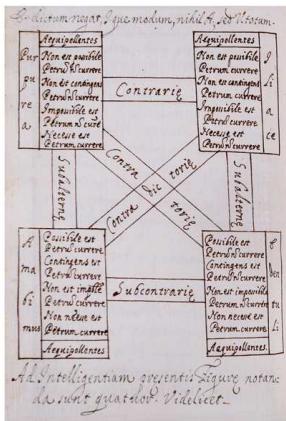 E. dictum negat, I que modum, nihil A. sed U. totum.
Pur
pu
re
a
Aequipollentes
Non est posibile
Petrū n̄ currere
Non est contingens
Petrū n̄ currere
Impossibile est
Petrum n̄ cure
Necesse est
Petrum currere
Contrarię
Aequipollentes
Non est possibile
Petrum currere
Non est contingens
Petrum currere
Impossibile est
Petrum currere
Necesse est
Petrū n̄ currere
I
li
a
ce
Subalternę
Contra
dic
torię
Contra
torię
Subalternę
A
ma
bi
mus
Possibile est
Petrū currere
Contingens est
Petrū currere
Petrū currere
Non necesse est
Petrum currere
Aequipollentes
Subcontrarię
Possibile est
Petrū n̄ currere
Contingens est
Petrū n̄ currere
Non est impossibile
Petrum n̄ currere
Non necesse est
Petrum currere
Aequipollentes
E
den
tu
li
Ad Intelligentiam presentis Figurę notan-
da sunt quatuor. Videlicet_